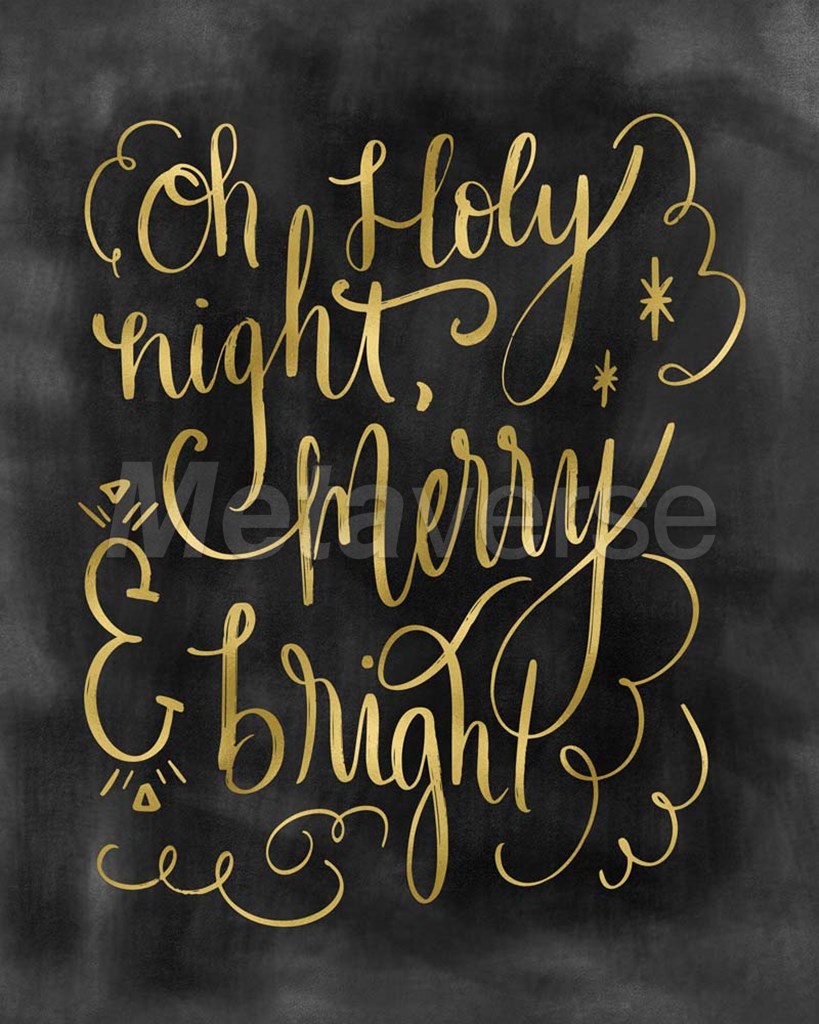 Oh Holy
night,
Merry
Metaverse
&
bright